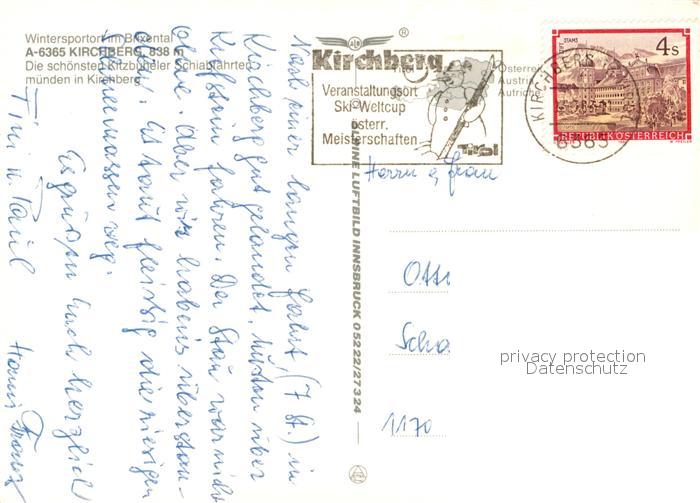 Wintersportort im Brixental
A-6365 KIRCHBERG, 838 m
Die schönsten Kitzbüheler Schiabfahrten
münden in Kirchberg
®
Kirchberg
Tirol
Veranstaltungsort
Ski-Weltcup
österr.
Meisterschaften
Tirol
Österreich
Austria
Autriche
STIFT STAMS
4 S
REPUBLIK ÖSTERREICH
KIRCHBERG
6365
ALPINE LUFTBILD INNSBRUCK 05222/27324
Nach einer langen Fahrt (7 St.) in
Kirchberg gut gelandet, mußten über
Kufstein fahren. Der Stau war nicht
ohne. Aber wir haben's überstan-
den. Es taut fleißig die riesigen
Schneemassen weg.
Es grüßen Euch herzlich
Tini u. Paul
Hanni Franz
Herrn u. Frau
Otti
Scha
1170
privacy protection
Datenschutz